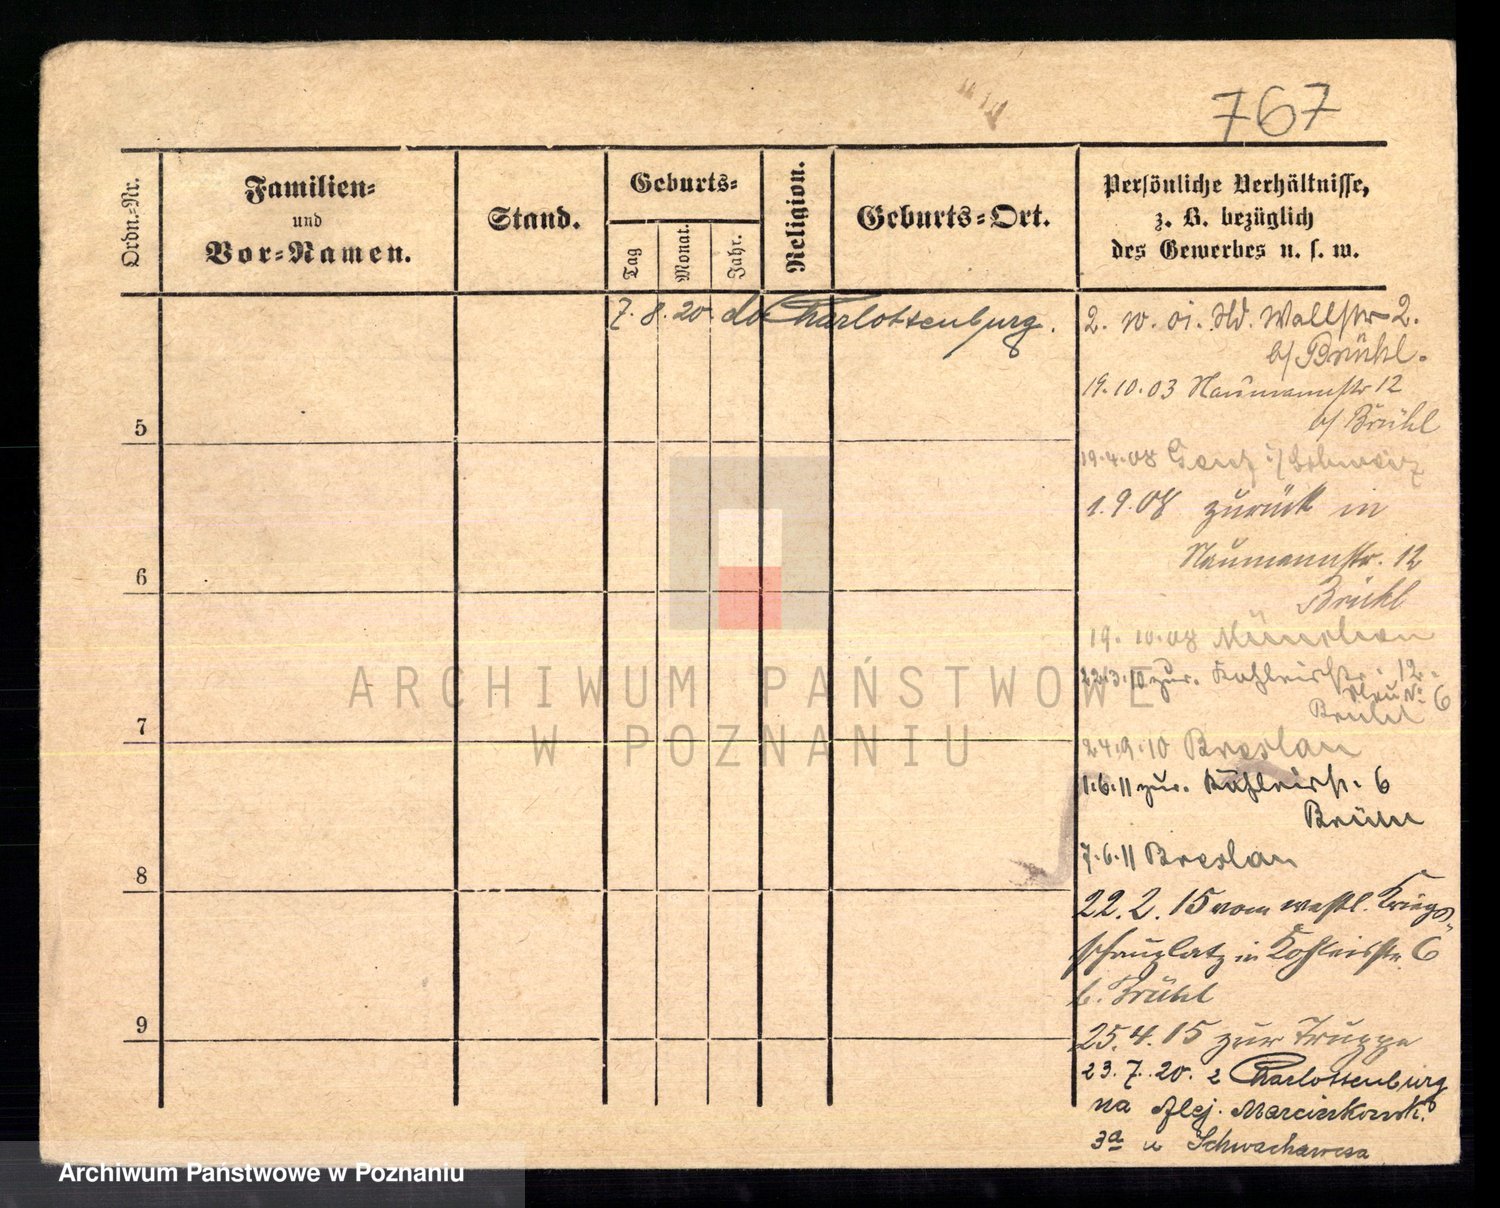 767
Ordn.-Nr.
Familien-
und
Vor-Namen.
Stand.
Geburts-
Tag
Monat.
Jahr.
Religion.
Geburts-Ort.
Persönliche Verhältnisse,
z. B. bezüglich
des Gewerbes u. s. w.
7. 8. 20. do Charlottenburg.
2. 10. 01. Wallstr 2.
b/ Brühl.
19.10.03 Naumannstr 12
b/ Brühl
5
19.4.08 Genf i/Schweiz
1.9.08 zurück in
Naumannstr. 12
Brühl
6
19. 10.08 München
22.3.10 zur. 12.
neu № 6
Brühl
7
24.9.10 Breslau
1.6.11 zur. 6
7.6.11 Breslau
8
22.2.15 vom westl. Kriegs-
schauplatz in 6
b. Brühl
9
25.4.15 zur Truppe
23. 7. 20. z Charlottenburg
na Alej. Marcinkowsk.
3a u
ARCHIWUM PAŃSTWOWE
W POZNANIU
Archiwum Państwowe w Poznaniu